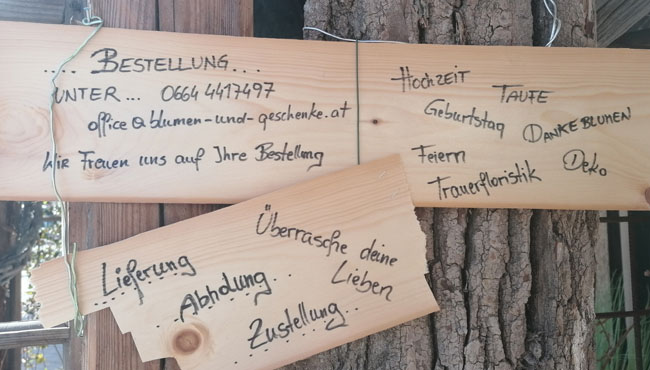 .... BESTELLUNG...
UNTER... 0664 4417497
office@blumen-und-geschenke.at
Wir Freuen uns auf Ihre Bestellung
Hochzeit
TAUFE
Geburtstag
DANKEBLUMEN
Feiern
Deko
Trauerfloristik
Überrasche deine
Lieben
..Lieferung
..Abholung..
..Zustellung..